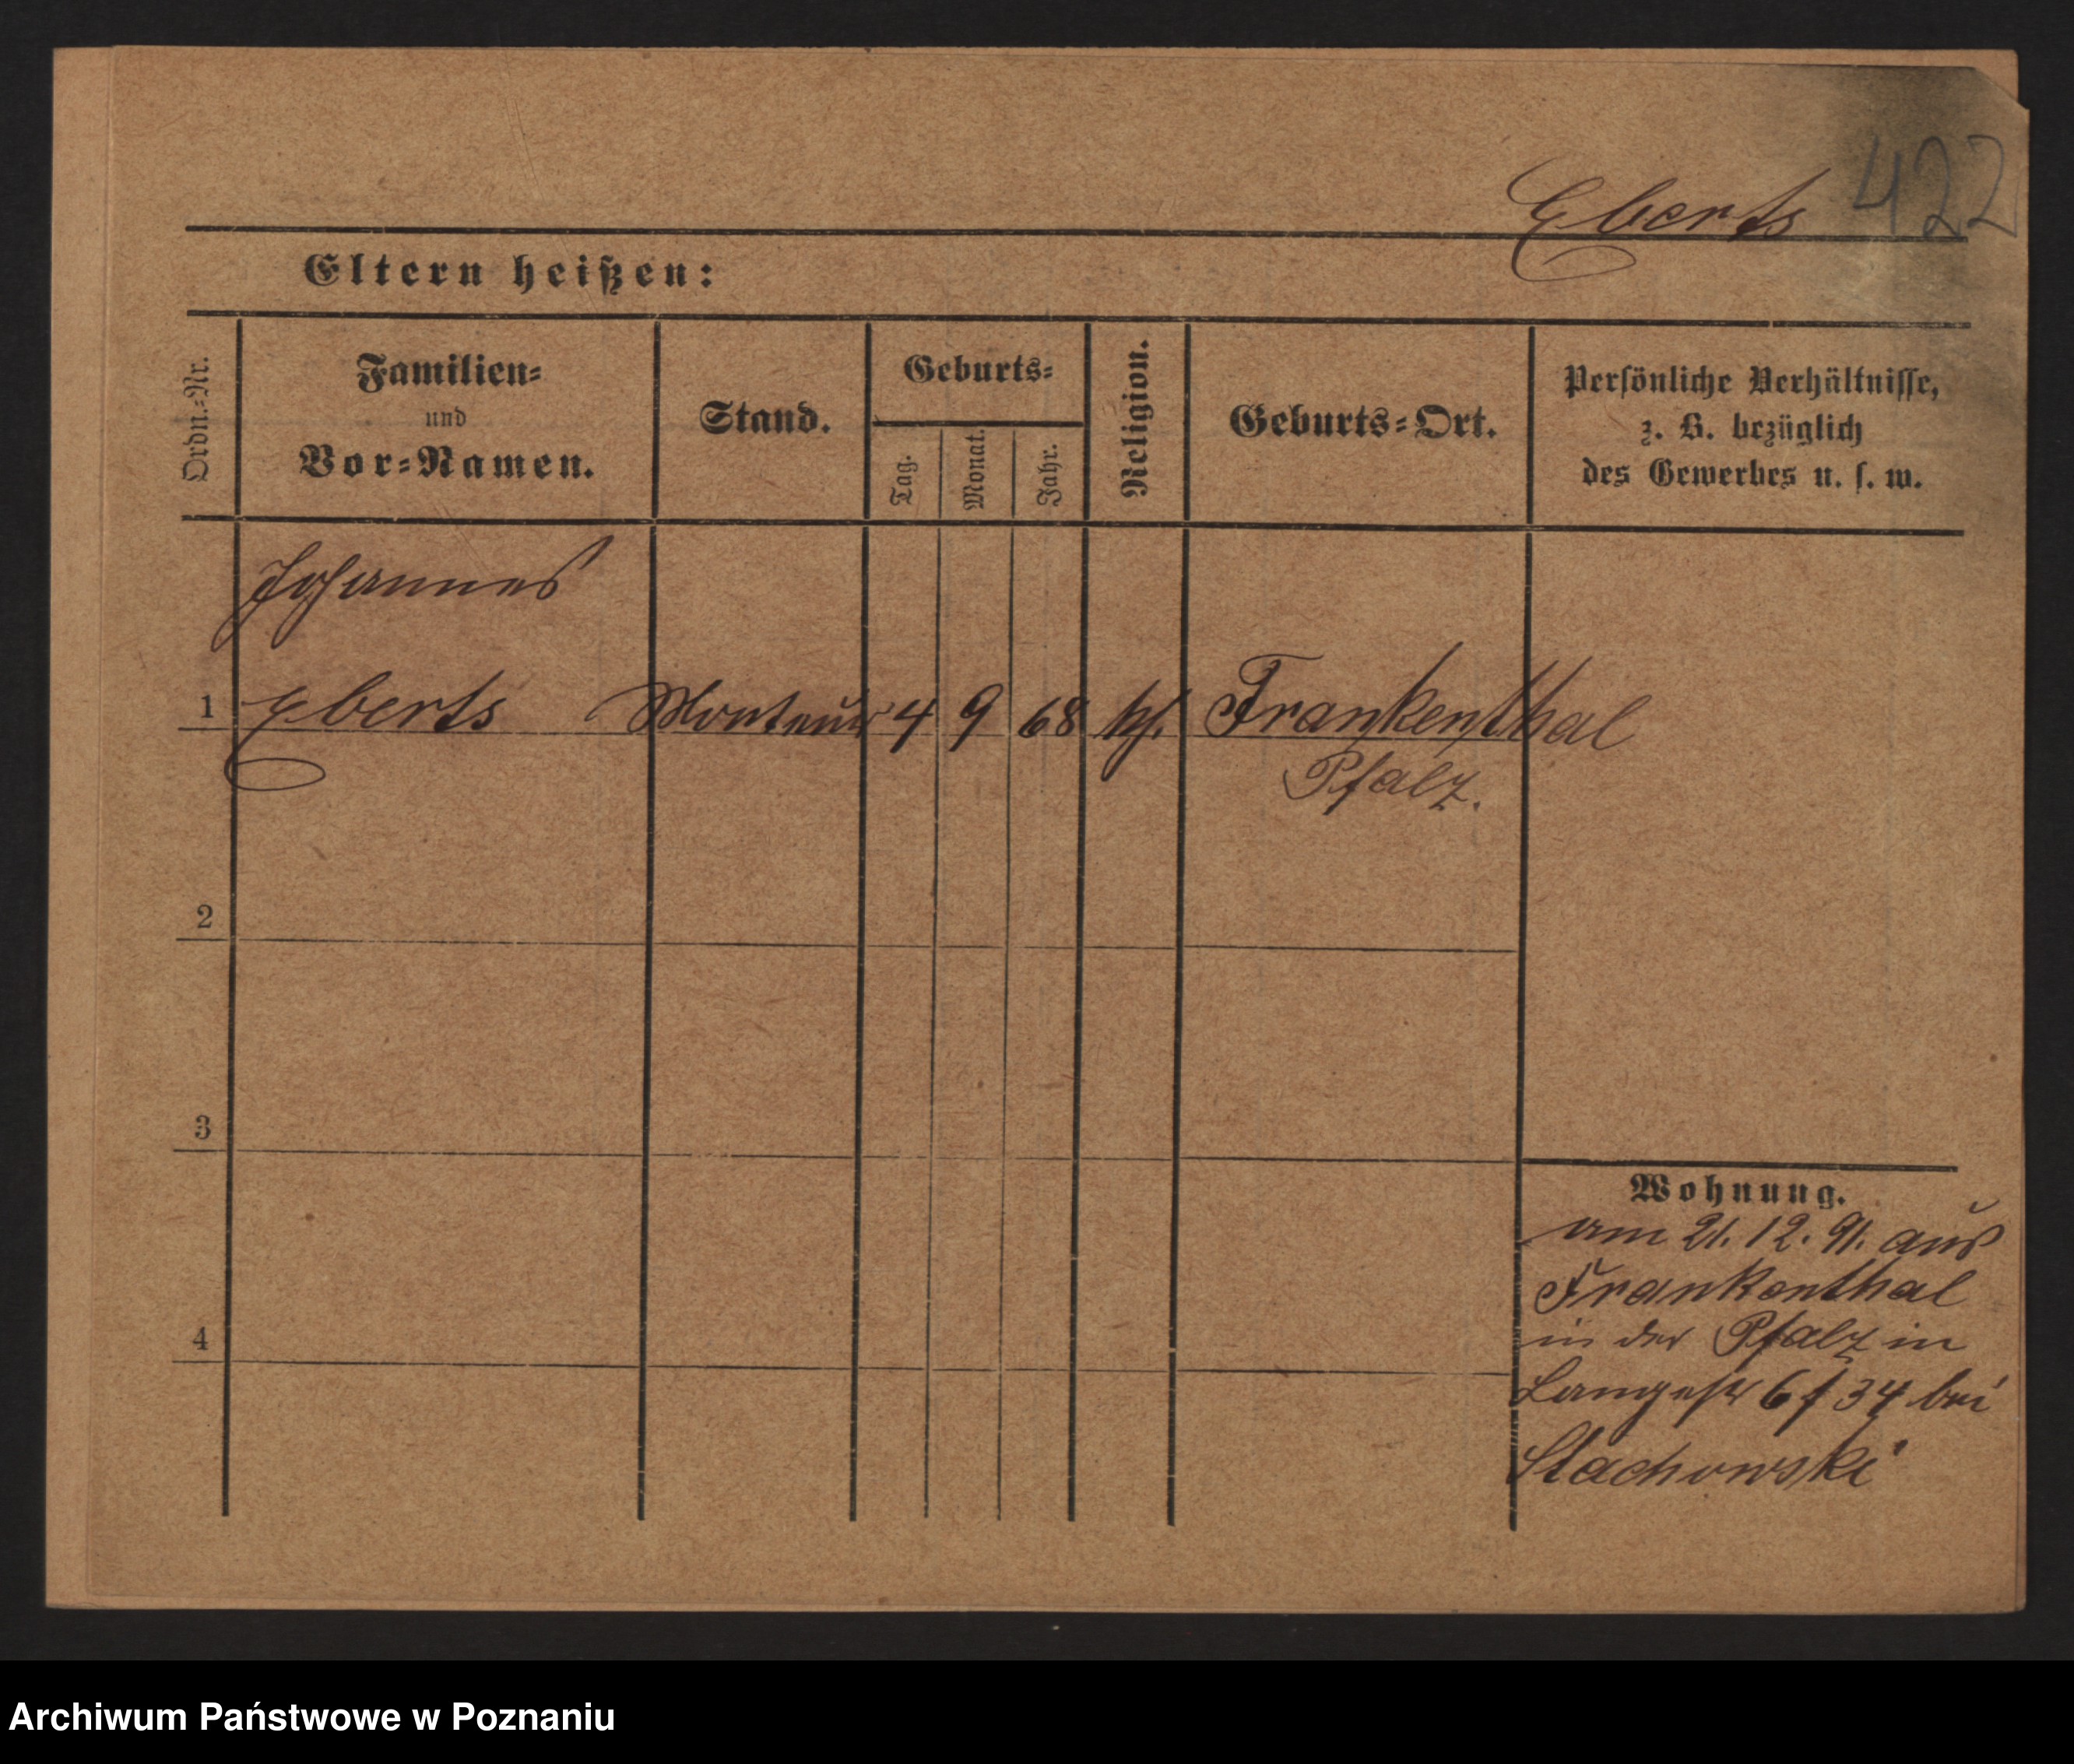 422
Eberts
Eltern heißen:
Ordn.-Nr.
Familien-
und
Vor-Namen.
Stand.
Geburts-
Tag.
Monat.
Jahr.
Religion.
Geburts-Ort.
Persönliche Verhältnisse,
z. B. bezüglich
des Gewerbes u. s. w.
Johannes
1 Eberts Monteur 4 9 68 kh. Frankenthal
Pfalz.
2
3
4
Wohnung.
am 21. 12. 91. aus
Frankenthal
in der Pfalz in
Langestr 6 / 34 bei
Stachowski
Archiwum Państwowe w Poznaniu